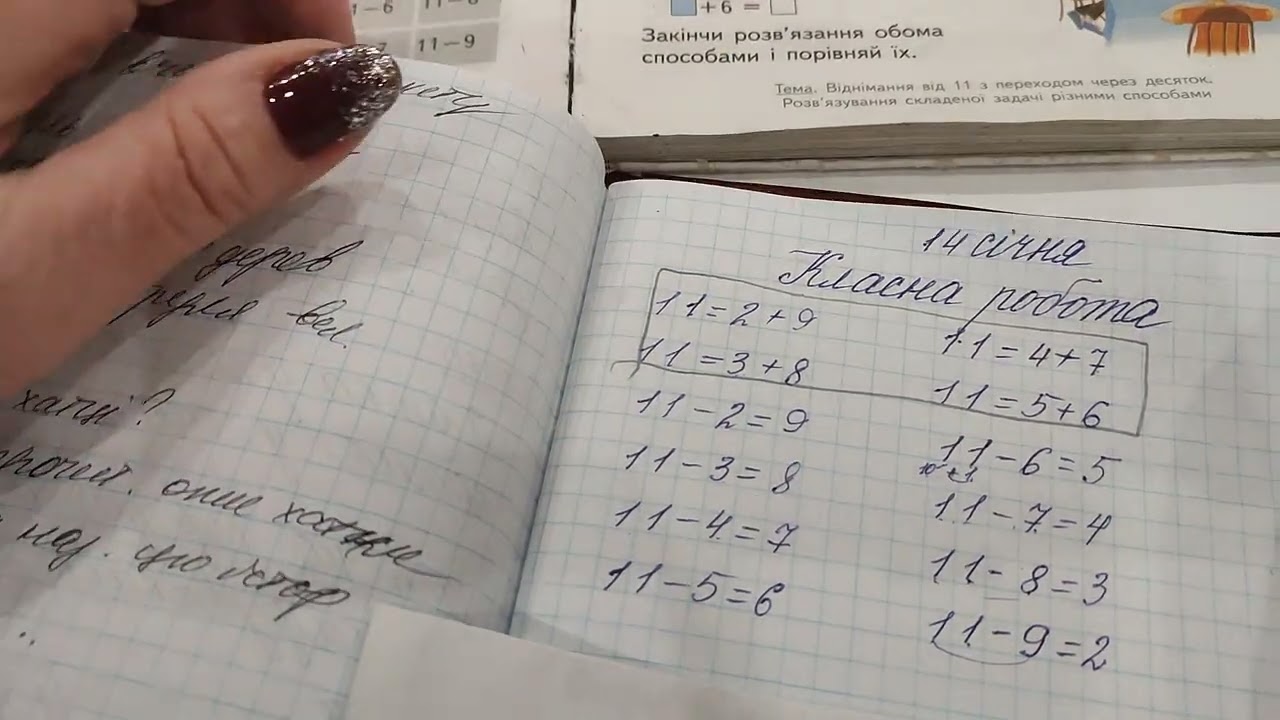 11-6
11-9
+6 =
Закінчи розв'язання обома
способами і порівняй їх.
Тема. Віднімання від 11 з переходом через десяток.
Розв'язування складеної задачі різними способами
дерев
вел.
хатці?
опис хатки
14 січня
Класна робота
11=2+9
11=3+8
11=4+7
11=5+6
11-2=9
11-3=8
11-4=7
11-5=6
11-6=5
10+1
11-7=4
11-8=3
11-9=2